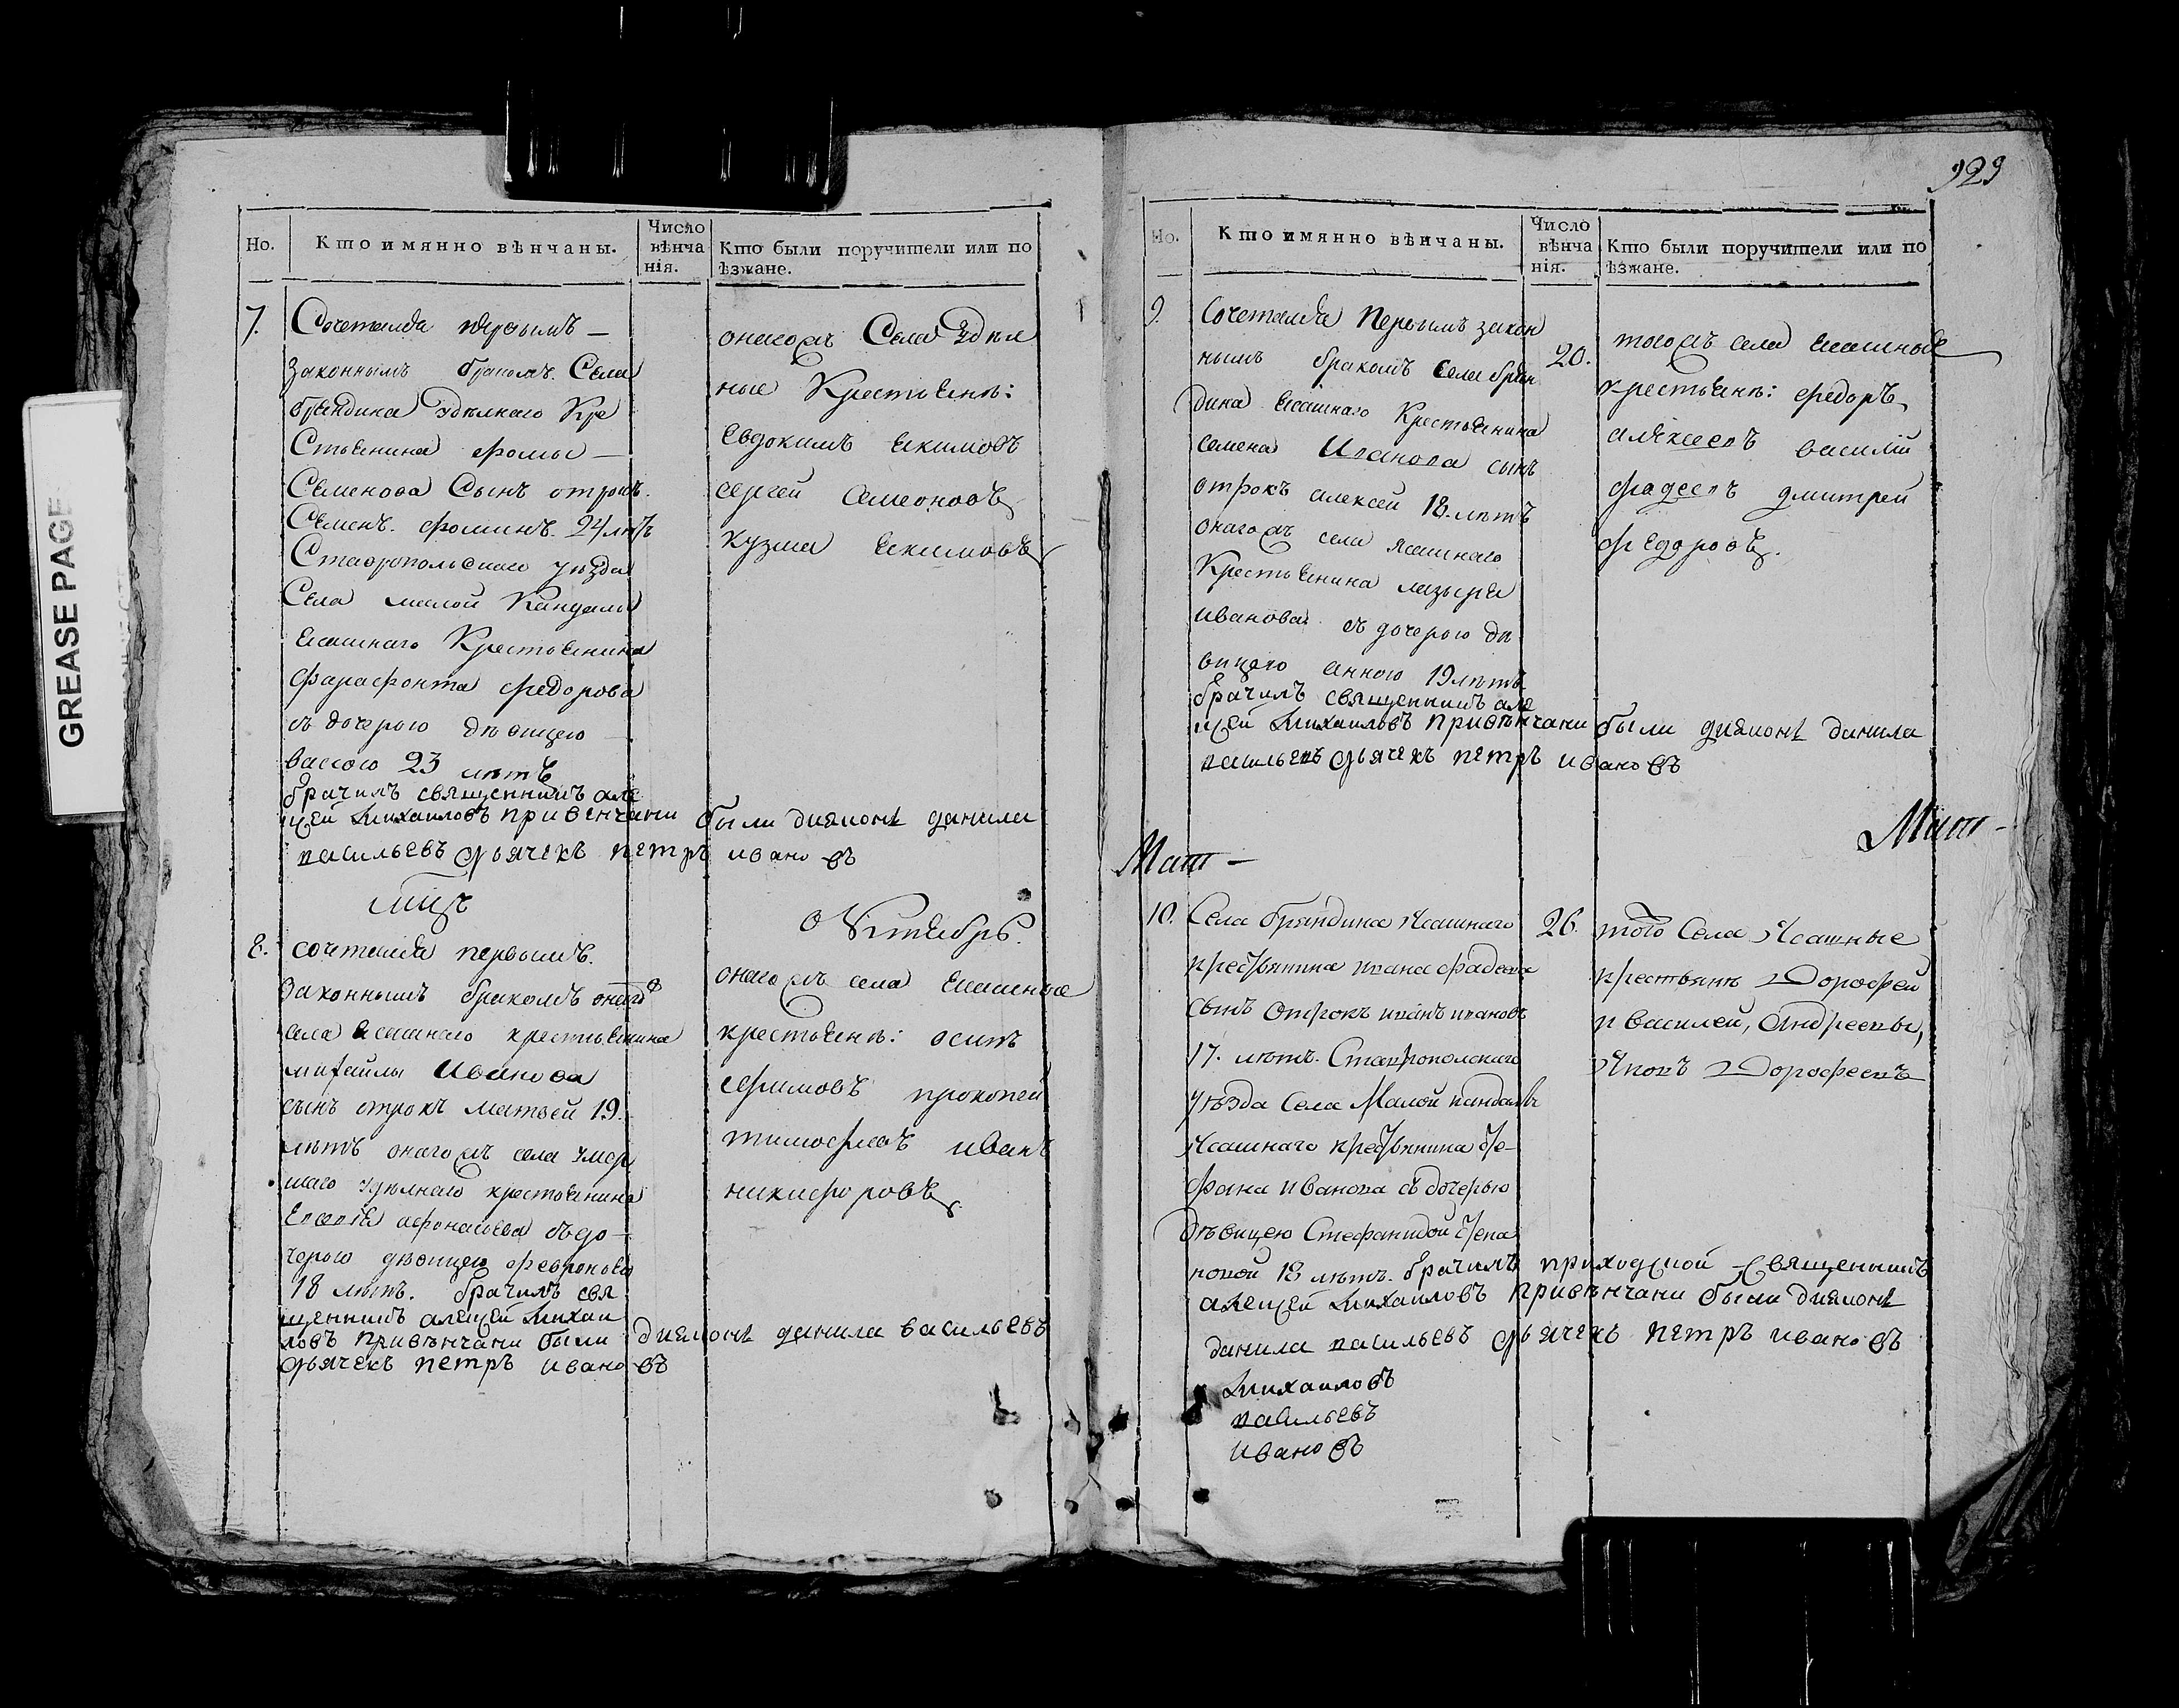 GREASE PAGE
Но.
Кто имянно вѣнчаны.
Число
вѣнча
нія.
Кто были поручители или по
ѣзжане.
7.
Сочеталса первымъ
законнымъ бракомъ. Села
бряндина удѣлнаго Кре
Стьенина фомы
Семенова Сынъ отрокъ.
Семенъ. фоминъ. 24 лѣтъ
Ставропольскаго уѣзда
Села малой Кандалы
есашнаго Крестьенина
фарафонта федорова
съ дочерью девицею
васою 23 лѣтъ
брачилъ священникъ але
ѯей михаиловъ привенчани были дияконъ данила
васильевъ дьячекъ петръ ивановъ
онагожъ Села Удѣл
ные Крестьенѣ:
Евдокимъ екимовъ
сергей семеоновъ
кузма екимовъ
мцъ
Октябрь.
8.
сочеталса первымъ.
законнымъ бракомъ онаго
села есашнаго крестьенина
михайлы Иванова
сынъ отрокъ матвей 19.
лѣтъ онагожъ села умер
шаго удѣлнаго крестьенина
афонасьева съ до
черью девицею февроньею
18 лѣтъ. брачилъ свя
щенникъ алеѯей михаи
ловъ привѣнчани были дияконъ данила васильевъ
дьячекъ петръ ивановъ
онагожъ села есашные
крестьенѣ: осипъ
ефимовъ прокопей
тимофеевъ иванъ
никифоровъ
929
Но.
Кто имянно вѣнчаны.
Число
вѣнча
нія.
Кто были поручители или по
ѣзжане.
9.
Сочеталса Первымъ закон
нымъ бракомъ Села брян
дина есашнаго Крестьенина
семена Иванова сынъ
отрокъ алексей 18. лѣтъ
онагожъ села ясашнаго
Крестьенина лазыря
иванова съ дочерью де
вицею анною 19 лѣтъ
брачилъ священникъ але
ѯей михаиловъ привѣнчани были дияконъ данила
васильевъ дьячекъ петръ ивановъ
20.
тогожъ села есашные
крестьенѣ: федоръ
алексеевъ василий
фадеевъ дмитрей
федоровъ.
10.
Села бряндина Ясашнаго
крестьянина ивана фадеева
сынъ Отрокъ иванъ ивановъ
17. лѣтъ. Ставрополскаго
уѣзда Села Малой кандалы
Ясашнаго крестьянина сте
фана иванова съ дочерью
дѣвицею Стефанидой степа
новой 18 лѣтъ. брачилъ приходской священникъ
алеѯей михаиловъ привѣнчани были дияконъ
данила васильевъ дьячекъ петръ ивановъ
михаиловъ
васильевъ
ивановъ
26.
того Села Ясашные
крестьянѣ Дорофей
и василей, Андреевы,
Яковъ Дорофеевъ